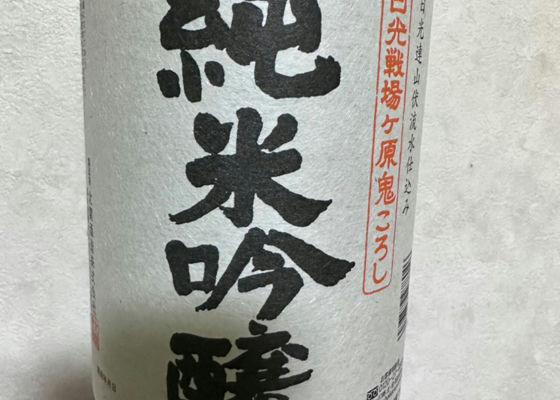 日光連山伏流水仕込み
日光戦場ヶ原鬼ころし
純米吟醸